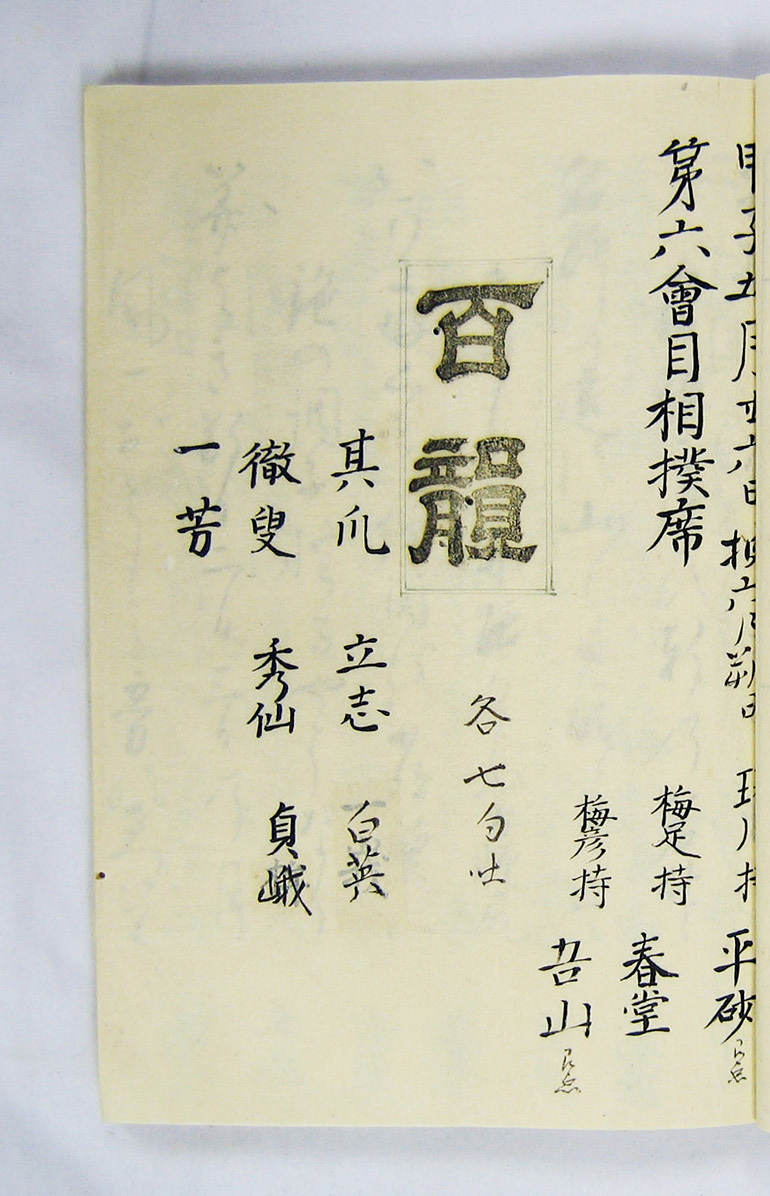 甲子五月廿六日 六月朔日 平砂
第六會目相撲席
梅足持 春堂
梅彦持 吾山
百韻
各七句吐
其爪 立志 白英
徹叟 秀仙 貞峨
一芳